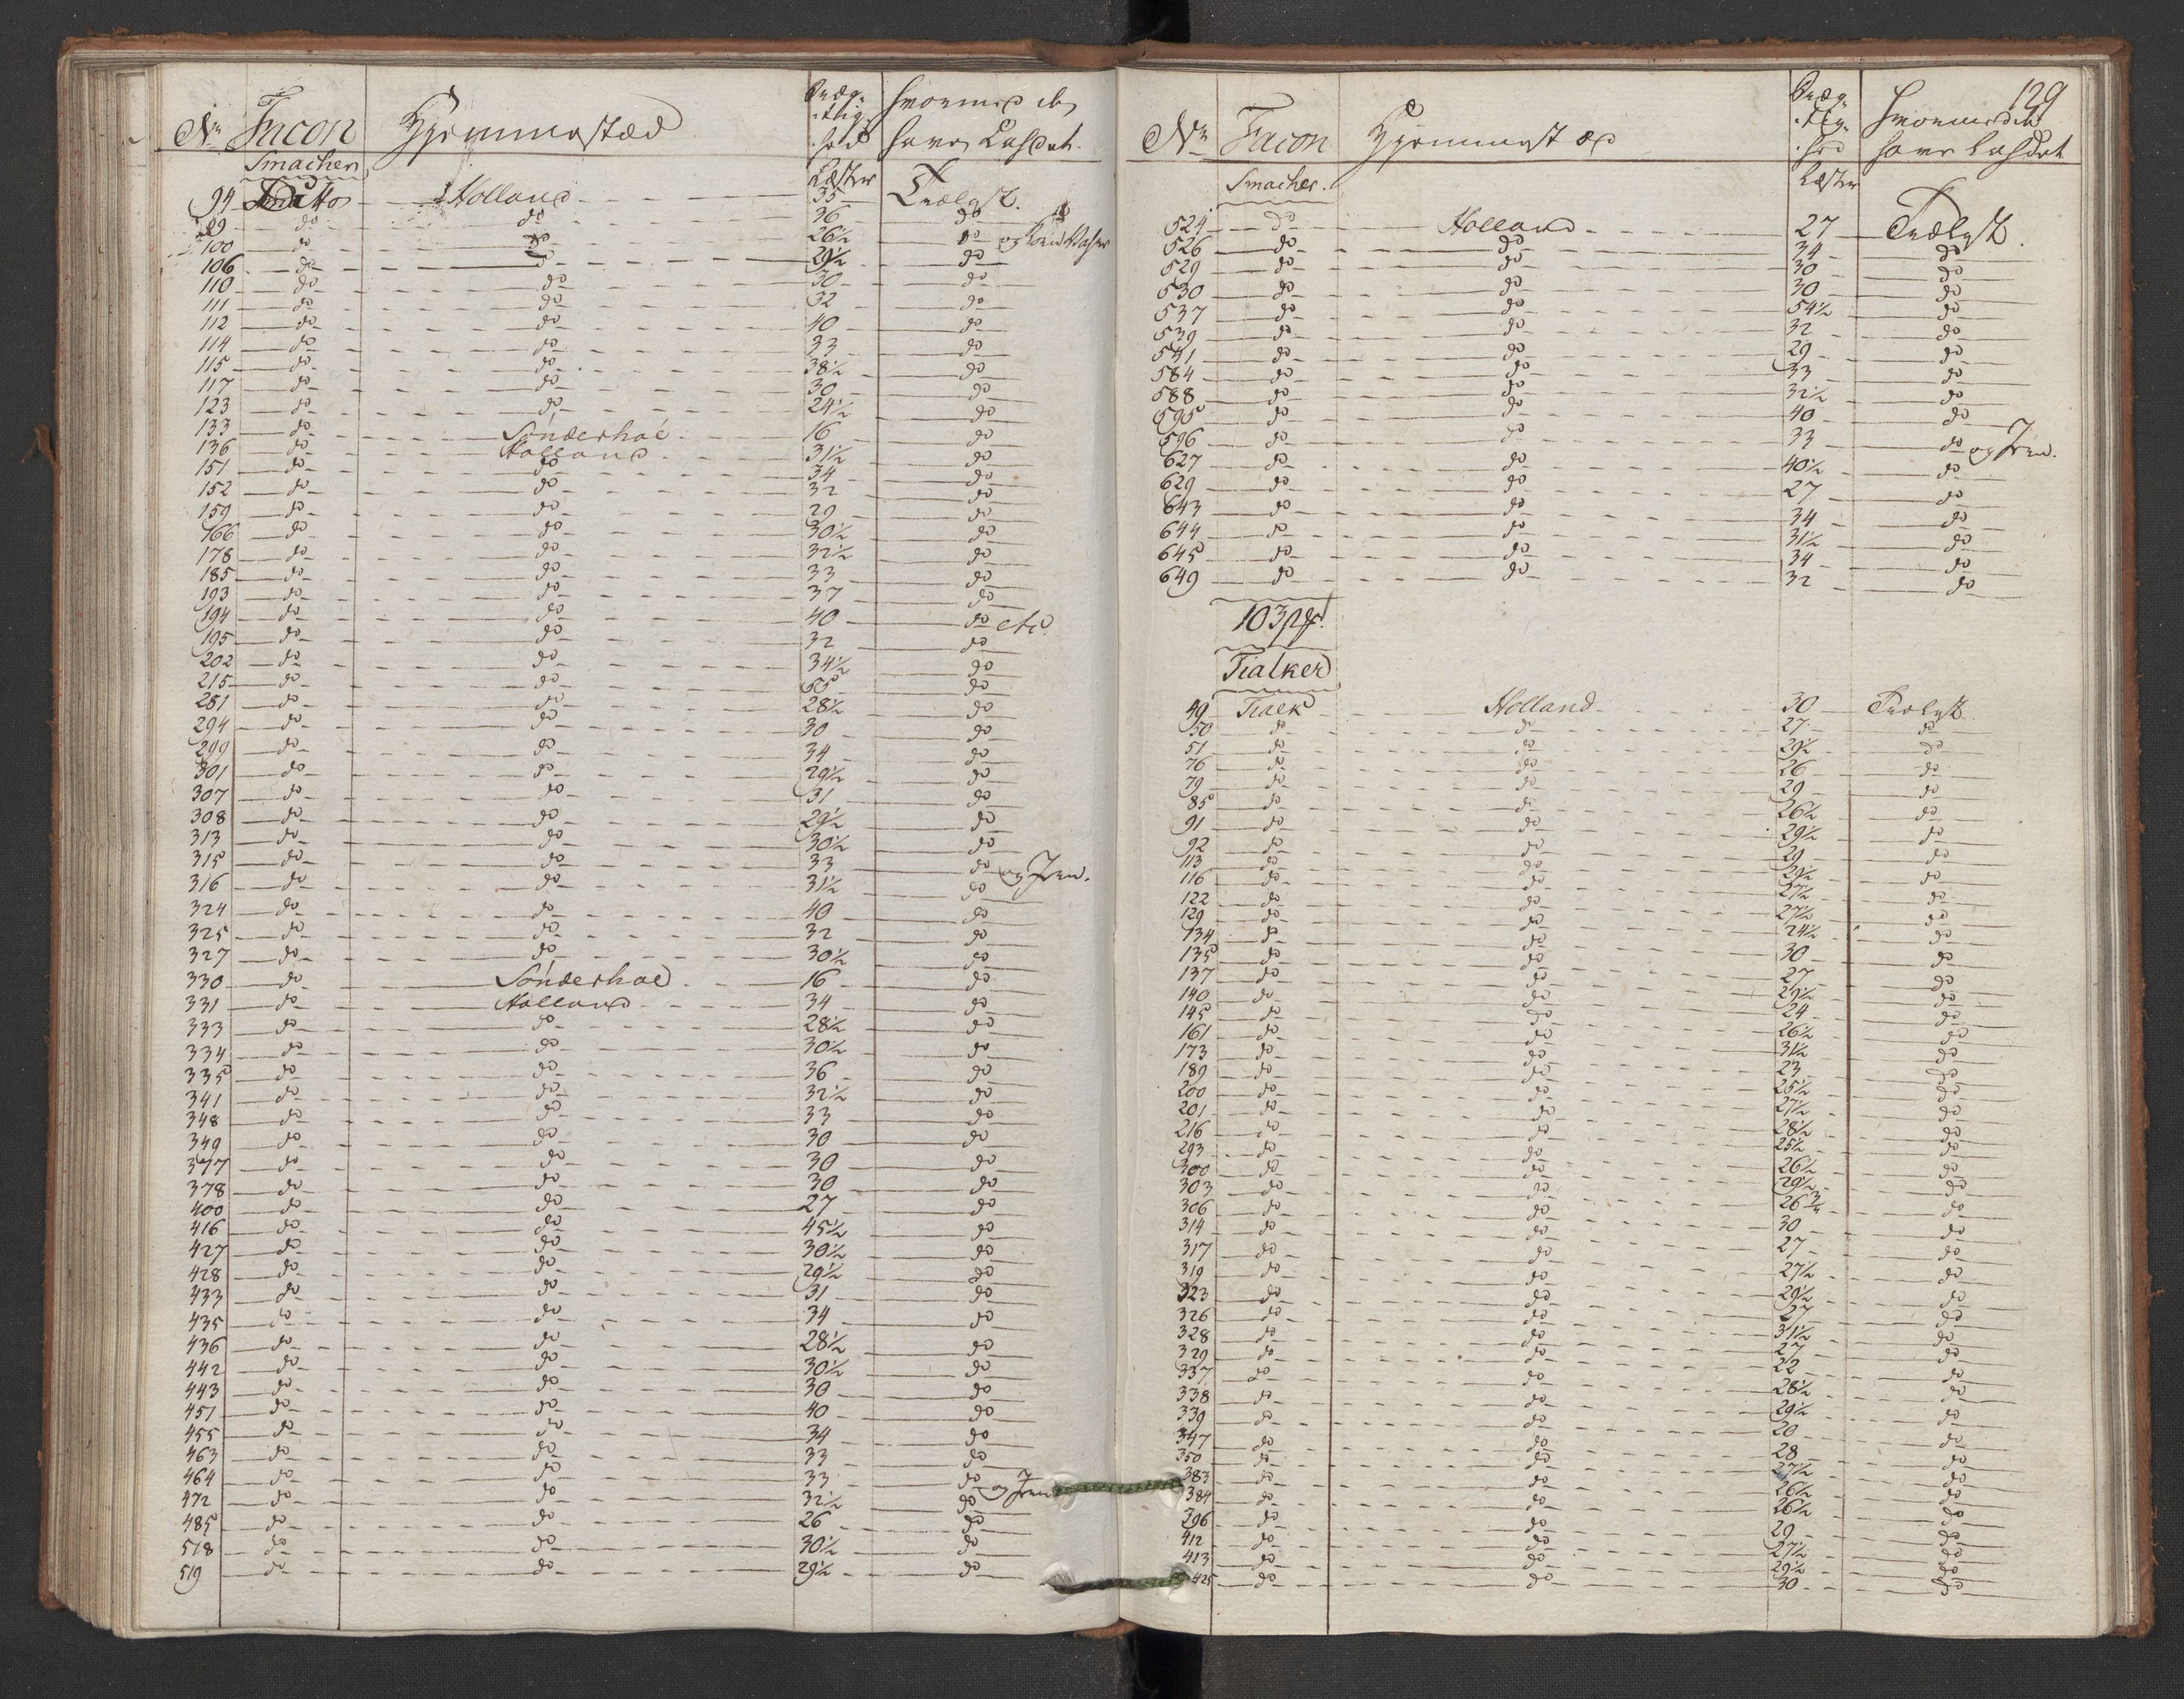 No Facon Hjemmestæd Dræg-
tlig-
hed hvormed de
have Ladet.
Smacher Læster
94 Ditto Holland 35 Trælast.
99 do do 36 do
100 do do 26½ do og Korn Vahre
106 do do 29½ do
110 do do 30 do
111 do do 32 do
112 do do 40 do
114 do do 33 do
115 do do 38½ do
117 do do 30 do
123 do do 24½ do
133 do Sönderhoe 16 do
136 do Holland 31½ do
151 do do 34 do
152 do do 32 do
159 do do 29 do
166 do do 30½ do
178 do do 32½ do
185 do do 33 do
193 do do 37 do
194 do do 40 do etc.
195 do do 32 do
202 do do 34½ do
215 do do 55 do
251 do do 28½ do
294 do do 30 do
299 do do 34 do
301 do do 29½ do
307 do do 31 do
308 do do 29½ do
313 do do 30½ do
315 do do 33 do og Jern.
316 do do 31½ do
324 do do 40 do
325 do do 32 do
327 do do 30½ do
330 do Sönderhoe 16 do
331 do Holland 34 do
333 do do 28½ do
334 do do 30½ do
335 do do 36 do
341 do do 32½ do
348 do do 33 do
349 do do 30 do
377 do do 30 do
378 do do 30 do
400 do do 27 do
416 do do 45½ do
427 do do 30½ do
428 do do 29½ do
433 do do 31 do
435 do do 34 do
436 do do 28½ do
442 do do 30½ do
443 do do 30 do
451 do do 40 do
455 do do 34 do
463 do do 33 do
464 do do 33 do og Jern
472 do do 32½ do
485 do do 26 do
518 do do 30½ do
519 do do 29½ do
129
No Facon Hjemmestæd Dræg-
tlig-
hed hvormed de
have Ladet
Smacher. Læster
524 do Holland 27 Trælast.
526 do do 34 do
529 do do 30 do
530 do do 30 do
537 do do 54½ do
539 do do 32 do
541 do do 29 do
584 do do 33 do
588 do do 32½ do
595 do do 40 do
596 do do 33 do og Jern.
627 do do 40½ do
629 do do 27 do
643 do do 34 do
644 do do 31½ do
645 do do 34 do
649 do do 32 do
103
Tialker
49 Tialk Holland 30 Trælast
50 do do 27 do
51 do do 29½ do
76 do do 26 do
79 do do 29 do
85 do do 26½ do
91 do do 29½ do
92 do do 29 do
113 do do 29½ do
116 do do 27½ do
122 do do 27½ do
129 do do 24½ do
134 do do 30 do
135 do do 27 do
137 do do 29½ do
140 do do 24 do
145 do do 26½ do
161 do do 31½ do
173 do do 23 do
189 do do 25½ do
200 do do 27½ do
201 do do 28½ do
216 do do 25½ do
293 do do 26½ do
300 do do 29½ do
303 do do 26¾ do
306 do do 30 do
314 do do 27 do
317 do do 27½ do
319 do do 29½ do
323 do do 27 do
326 do do 31½ do
328 do do 27 do
329 do do 22 do
337 do do 28½ do
338 do do 29½ do
339 do do 20 do
347 do do 28 do
350 do do 27½ do
383 do do 26½ do
384 do do 26½ do
296 do do 29 do
412 do do 27½ do
413 do do 29½ do
425 do do 30 do